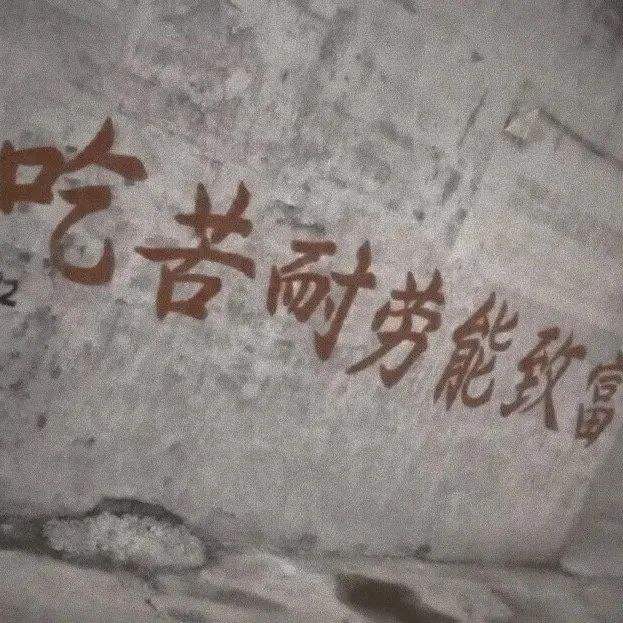 吃苦耐劳能致富